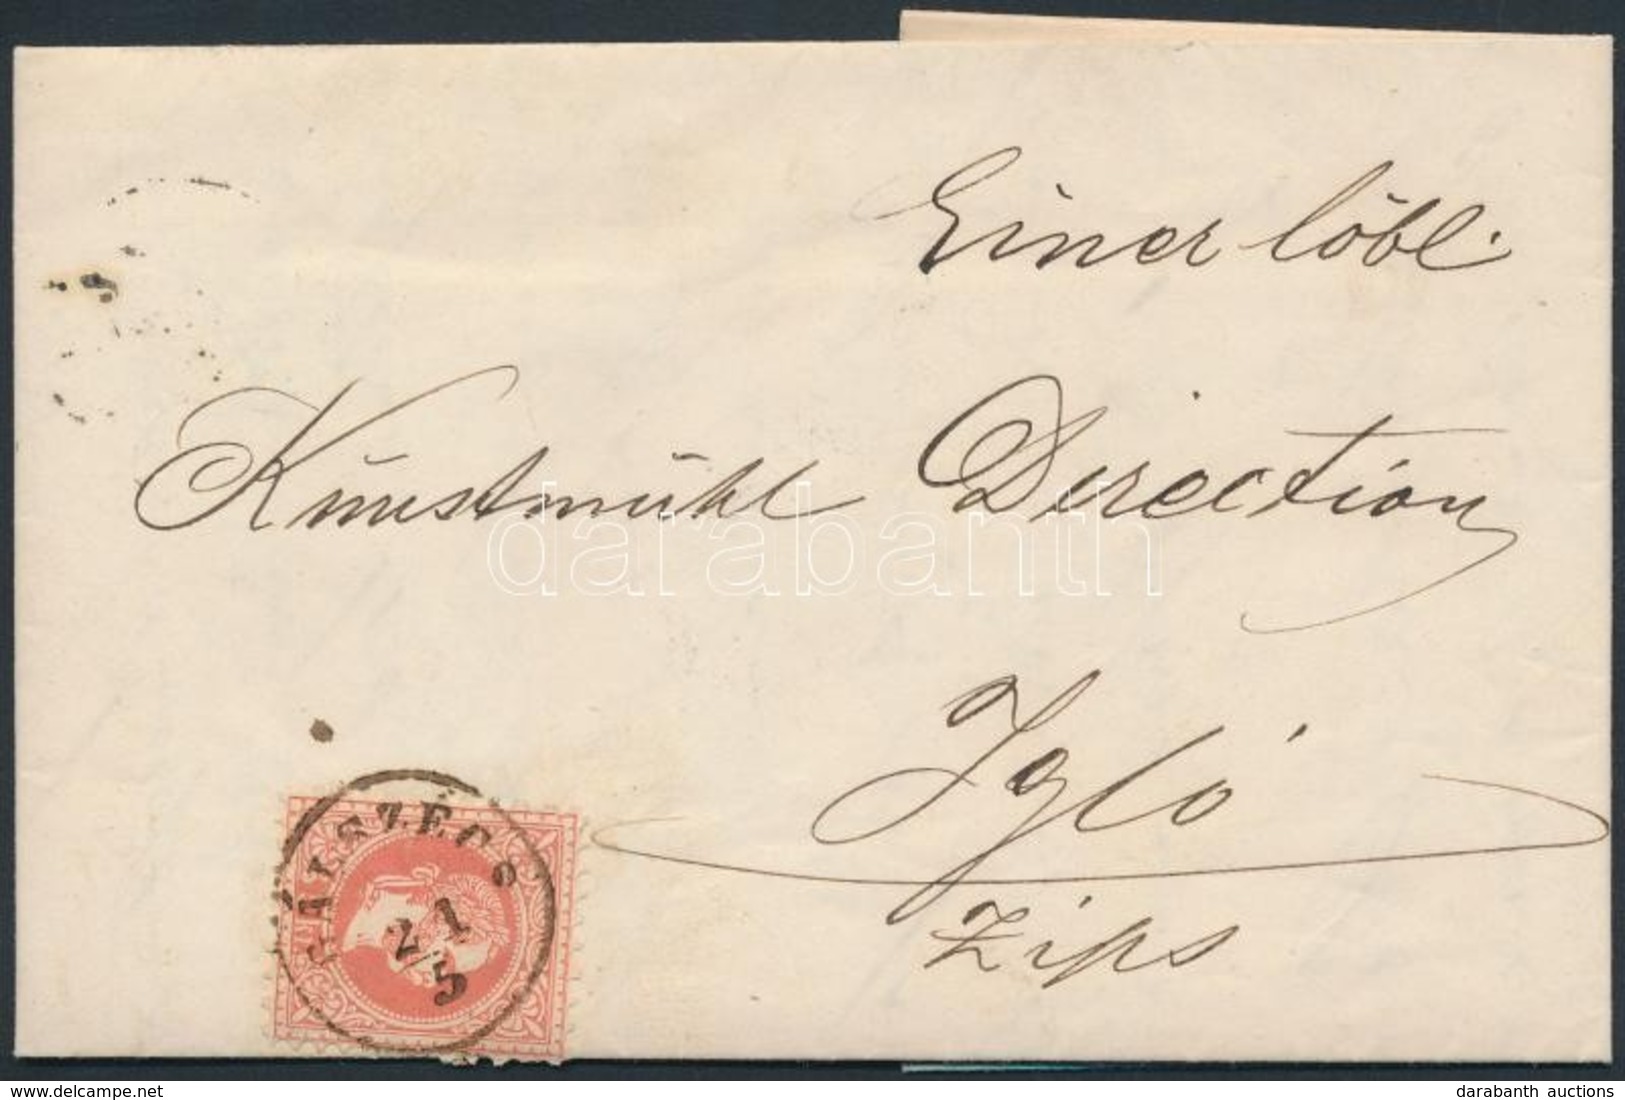 Einer löbl.
Kunstmühl Direction
Igló
Zips
GÁLSZÉCS
21
5
darabanth
delcampe.net
darabanth auctions